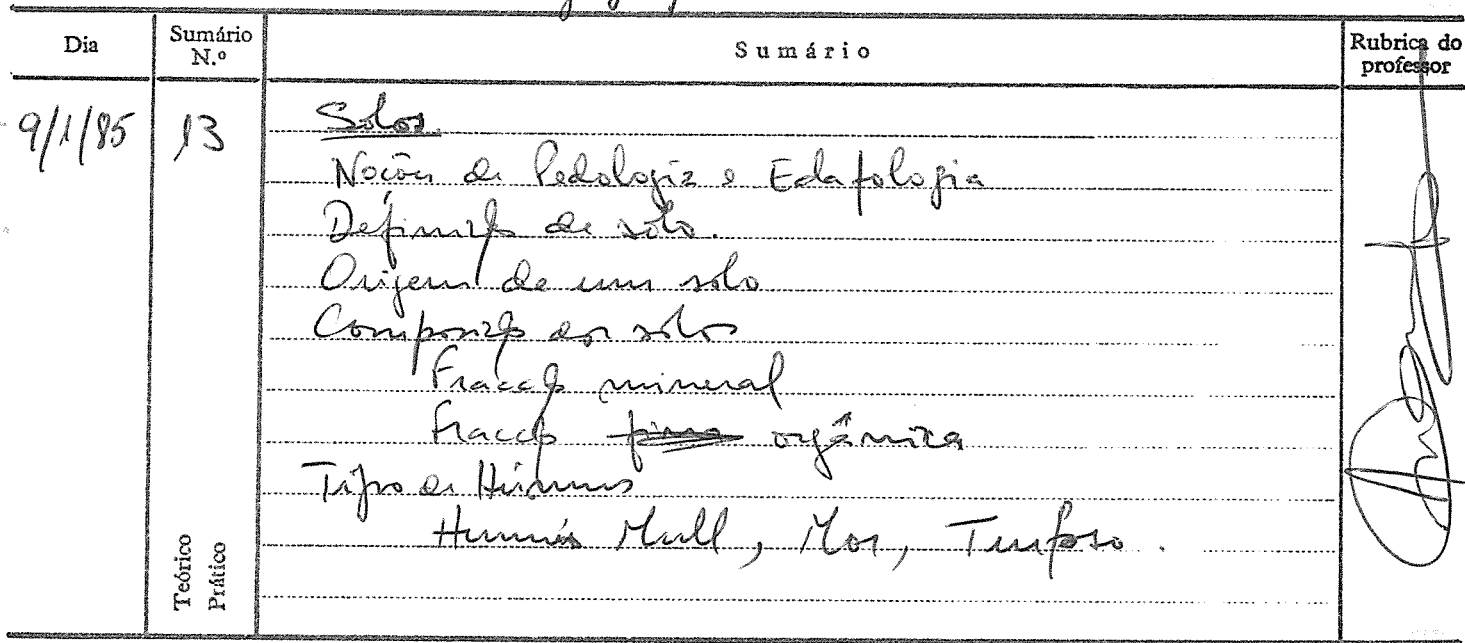 Dia
Sumário N.º
Sumário
Rubrica do professor
9/1/85
13
Solos.
Noções de Pedologia e Edafologia
Definição de solo.
Origem de um solo
Composição dos solos
Fracção mineral
Fracção fina orgânica
Tipo de Húmus
Humus Mull, Mor, Turfoso.
Teórico
Prático